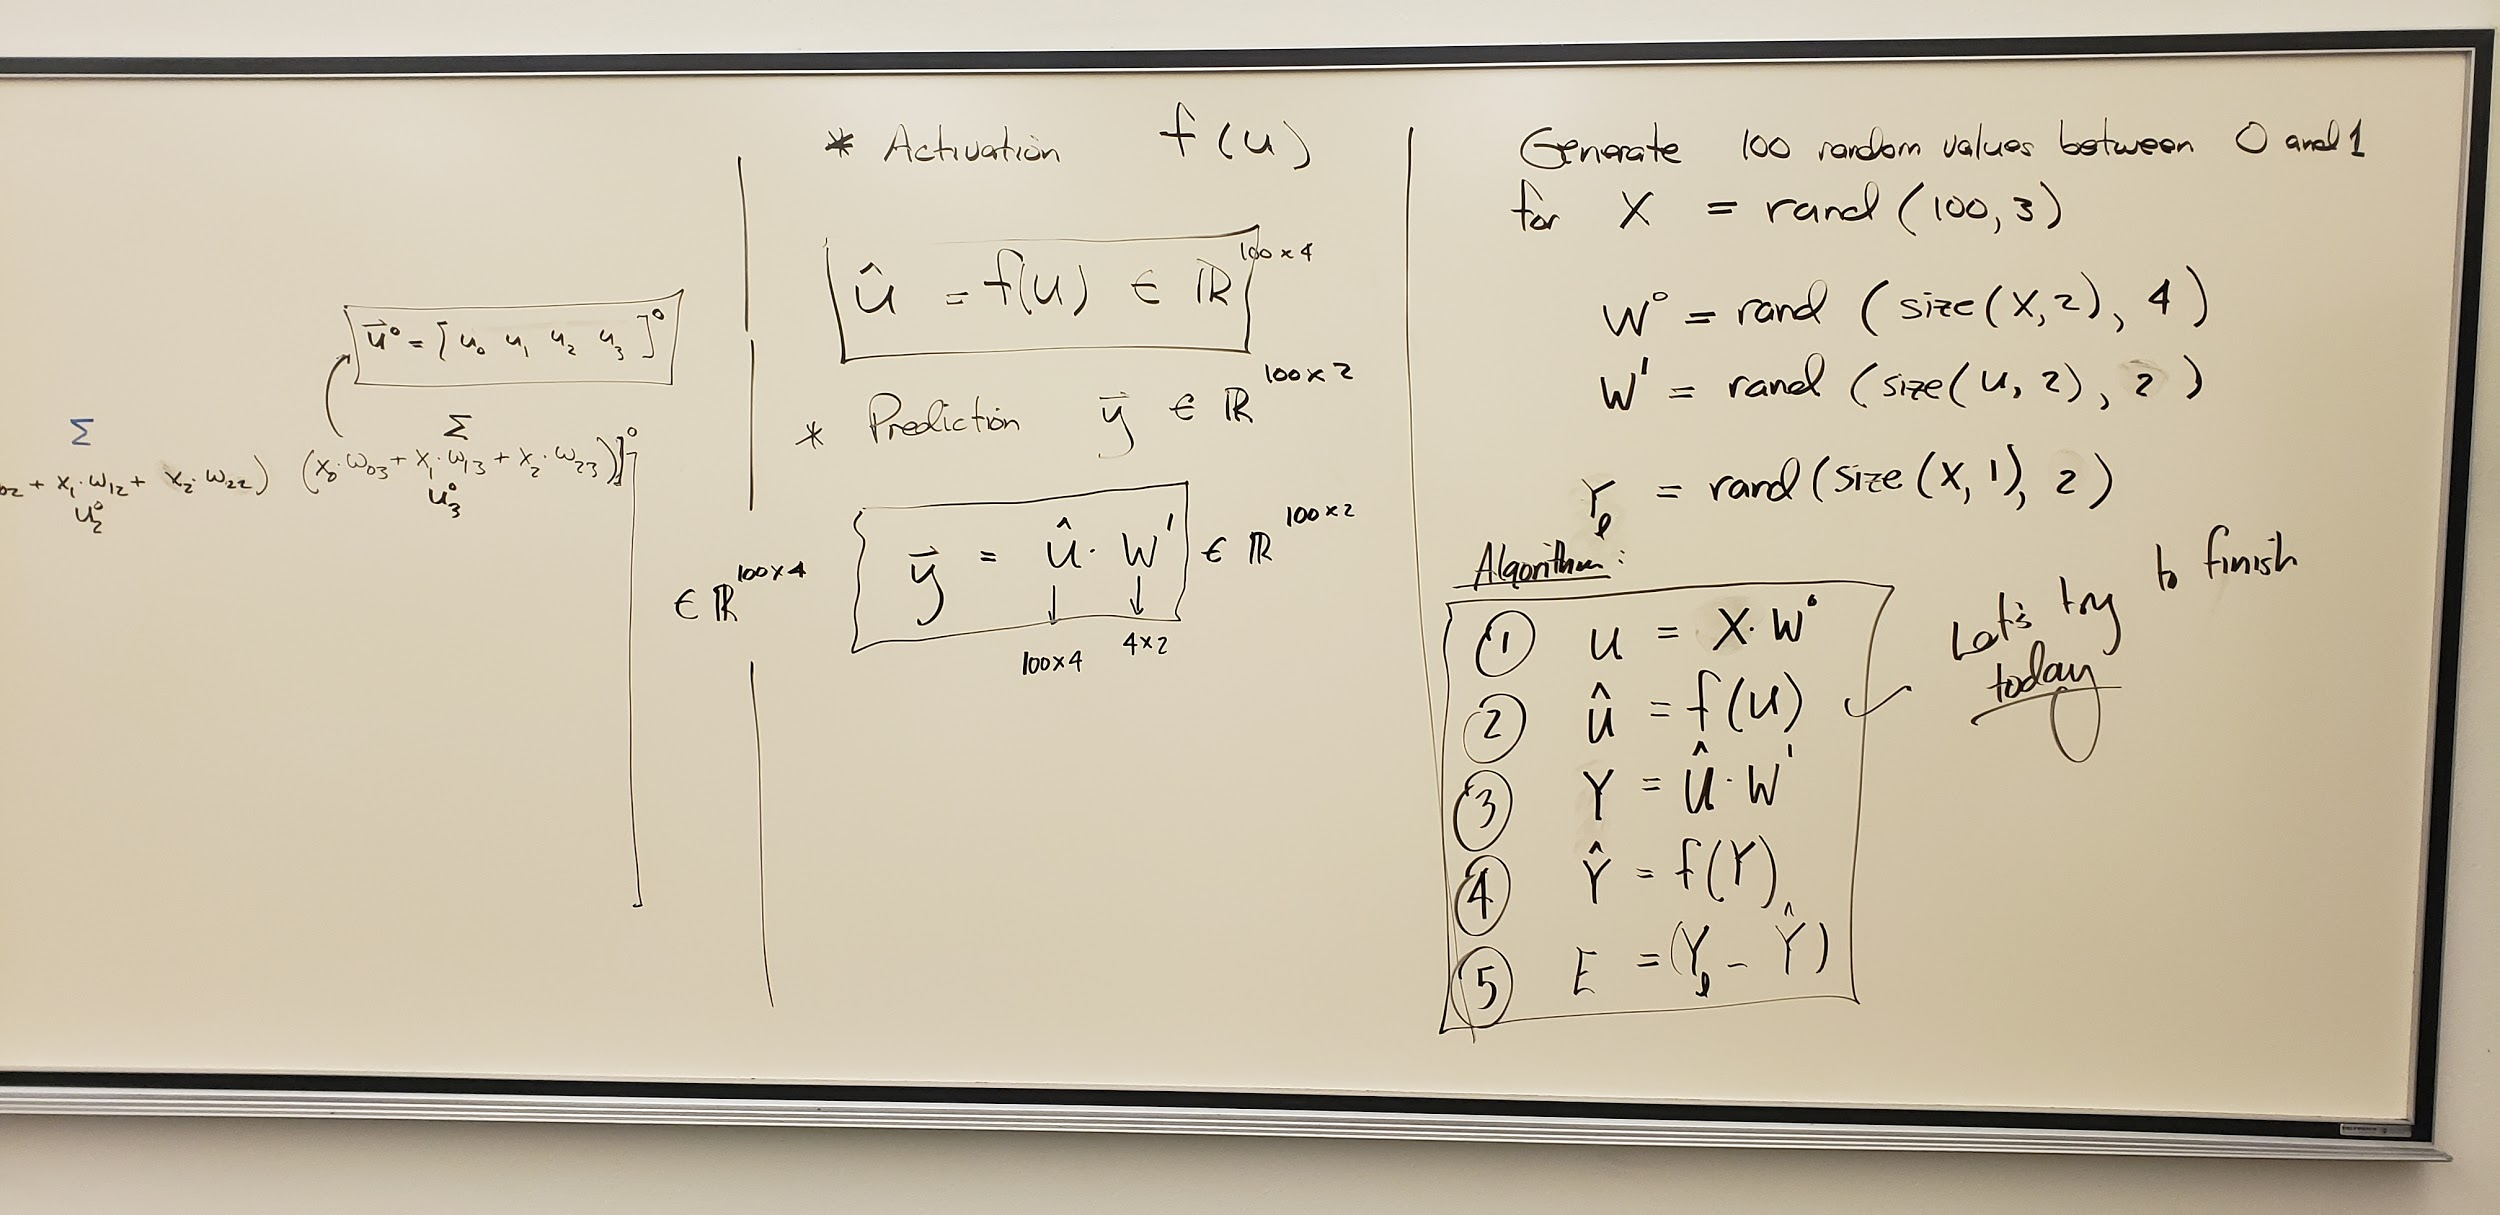 u⃗⁰ = [ u₀ u₁ u₂ u₃ ]⁰
Σ Σ
₀₂ + x₁·w₁₂ + x₂·w₂₂) (x₀·w₀₃ + x₁·w₁₃ + x₂·w₂₃)]⁰
u₂⁰ u₃⁰
∈ ℝ¹⁰⁰ˣ⁴
* Activation f(u)
û = f(u) ∈ ℝ¹⁰⁰ˣ⁴
* Prediction y⃗ ∈ ℝ¹⁰⁰ˣ²
y⃗ = û · W¹ ∈ ℝ¹⁰⁰ˣ²
↓ ↓
100x4 4x2
Generate 100 random values between 0 and 1
for X = rand(100,3)
W⁰ = rand (size(X,2), 4)
W¹ = rand (size(u,2), 2)
Yₗ = rand(size(X,1), 2)
Algorithm:
① u = X·W⁰
② û = f(u) ✓
③ Y = û·W¹
④ Ŷ = f(Y)
⑤ E = (Yₗ - Ŷ)
Let's try to finish
today